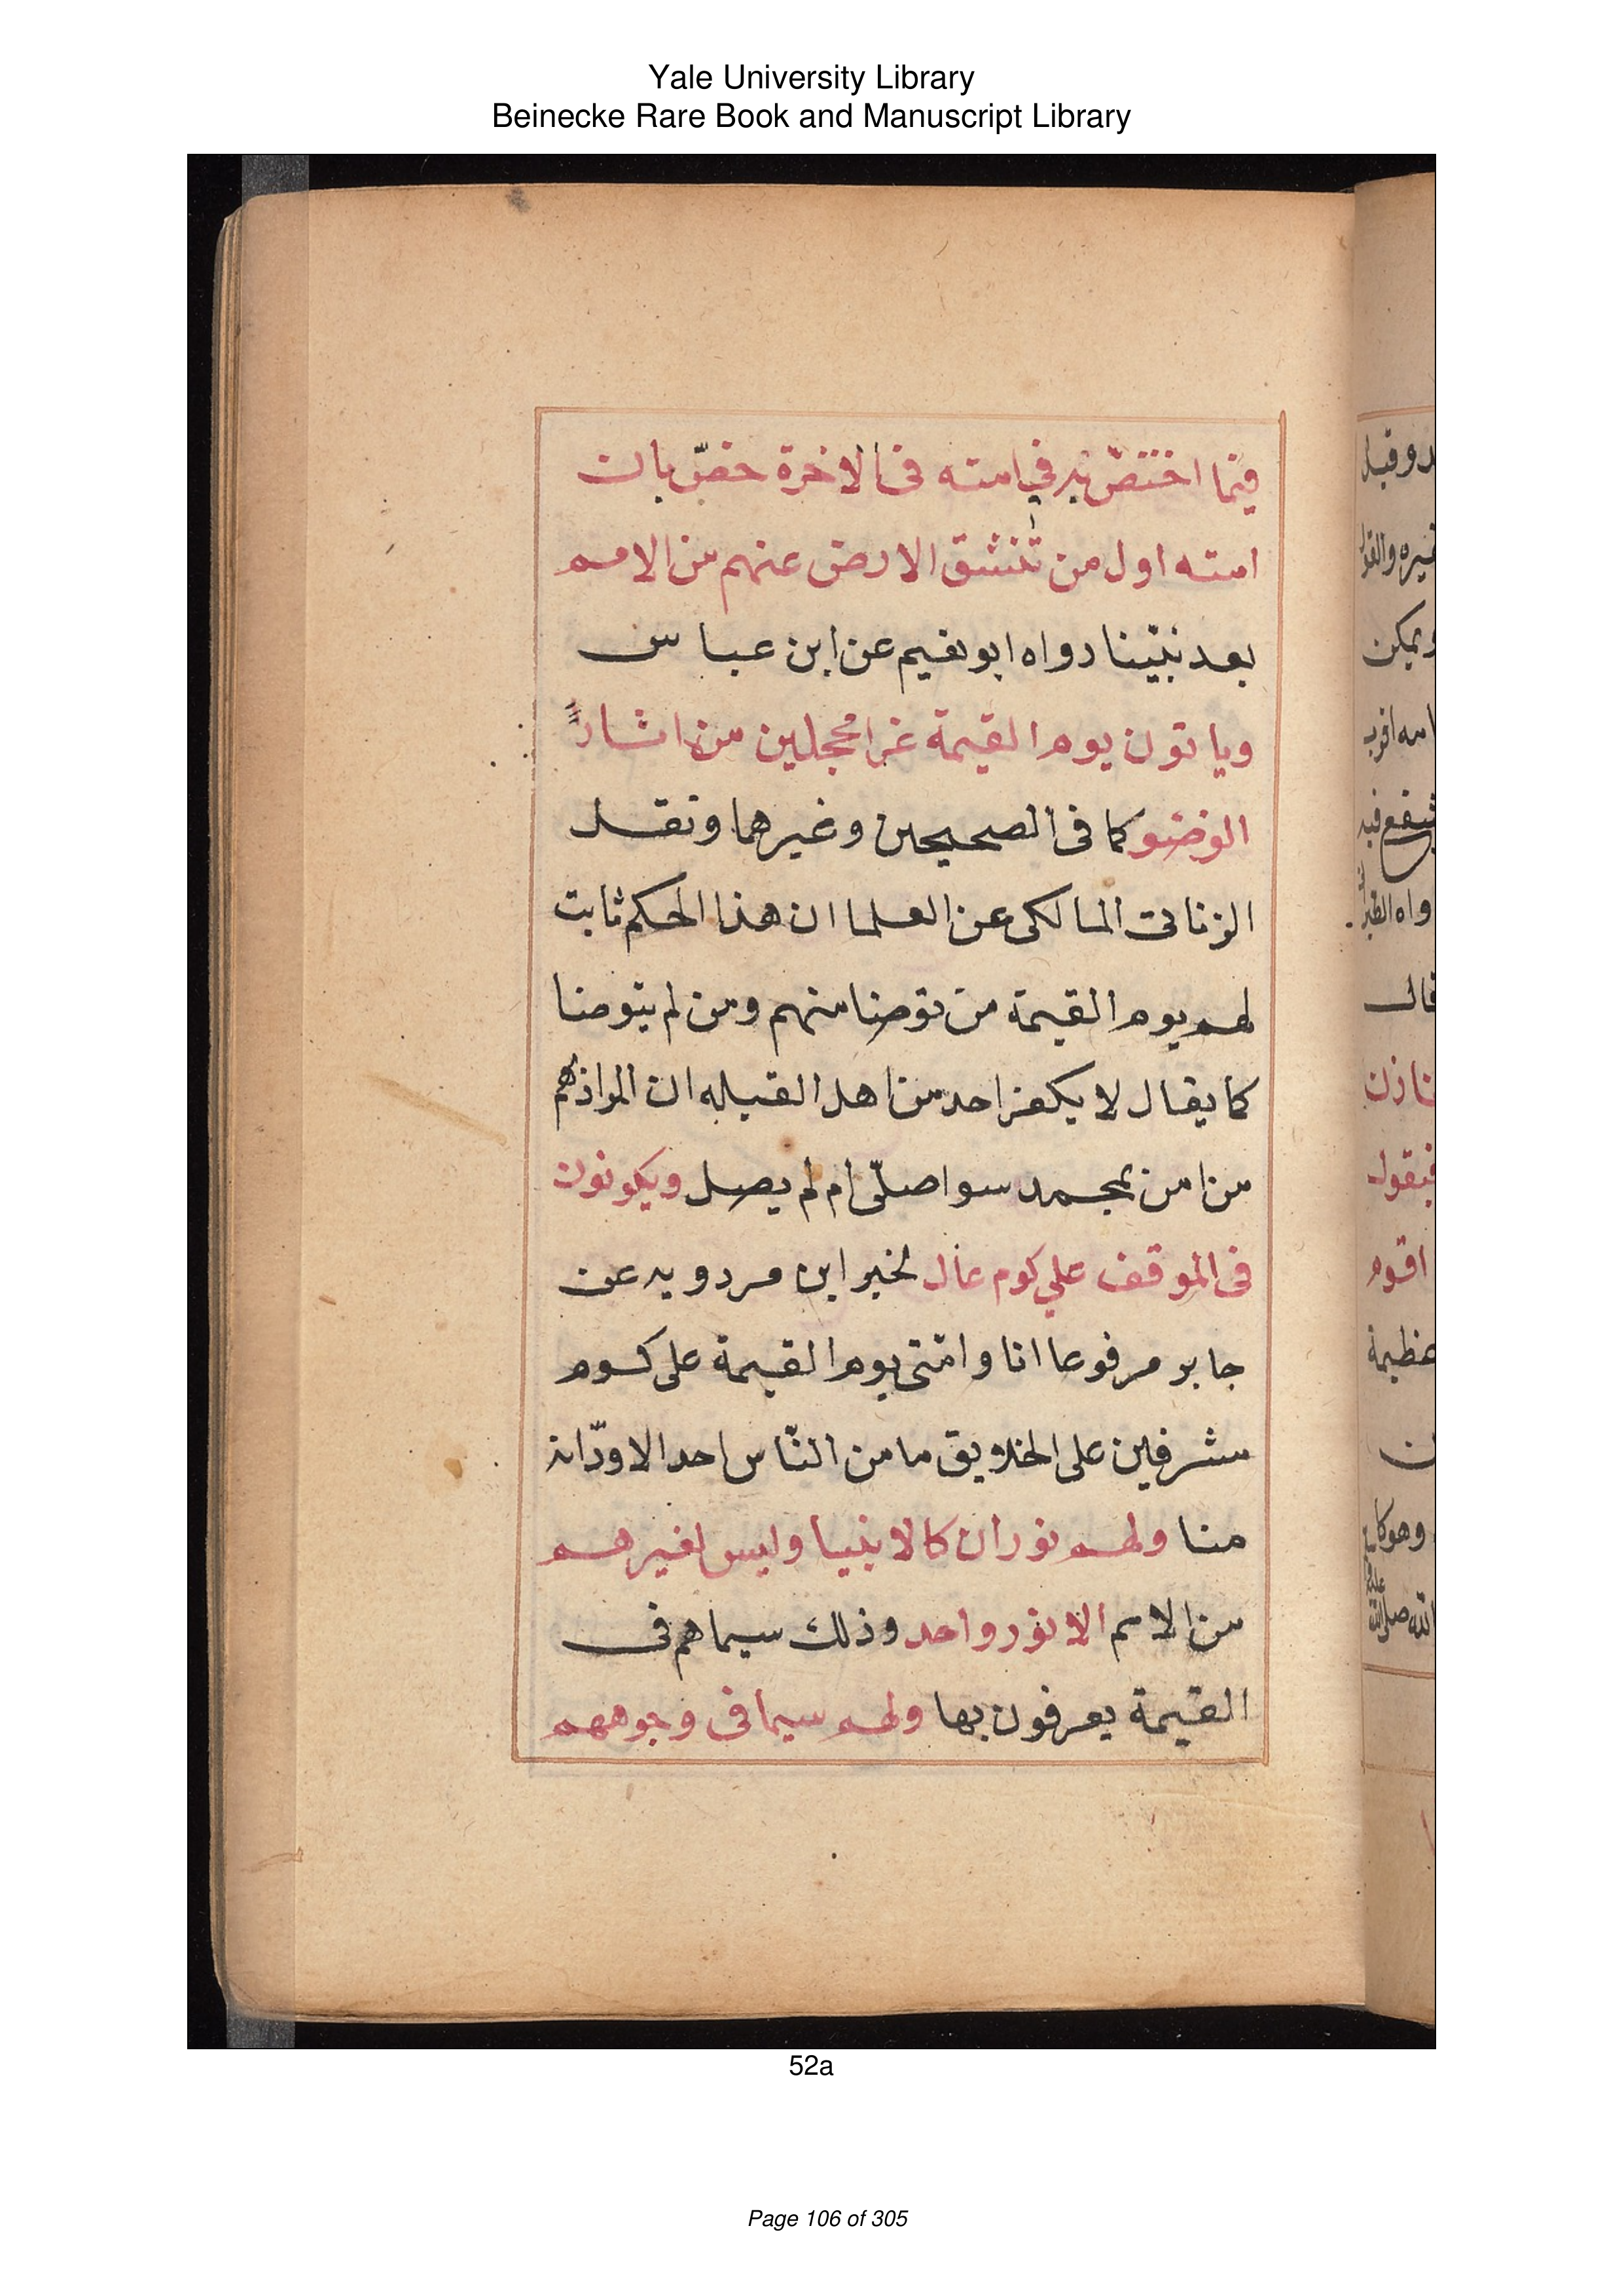 Yale University Library
Beinecke Rare Book and Manuscript Library
فيما اختصّ به في امته فى الاخرة خصّ بان
امته اول من تنشق الارض عنهم من الامم
بعد نبيّنا رواه ابو نعيم عن ابن عباس
وياتون يوم القيمة غرا محجلين من اثار
الوضو كما فى الصحيحين وغيرهما ونقل
الزناتى المالكى عن العلما ان هذا الحكم ثابت
لهم يوم القيمة من توضا منهم ومن لم يتوضا
كما يقال لا يكفر احد من اهل القبله ان المراد
من امن بمحمد سوا صلّى ام لم يصل ويكونون
فى الموقف علي كوم عال لخبر ابن مردويه عن
جابر مرفوعا انا وامّتى يوم القيمة على كوم
مشرفين على الخلايق ما من النّاس احد الا ودّ انه
منا ولهم نوران كالانبيا وليس لغيرهم
من الامم الا نور واحد وذلك سيماهم فى
القيمة يعرفون بها ولهم سيما فى وجوههم
د وقيل
غيره والقو
ويمكن
اسه اقرب
شفع فيه
واه الطبر
قال
فيقول
اقوم
عظيمة
52a
Page 106 of 305